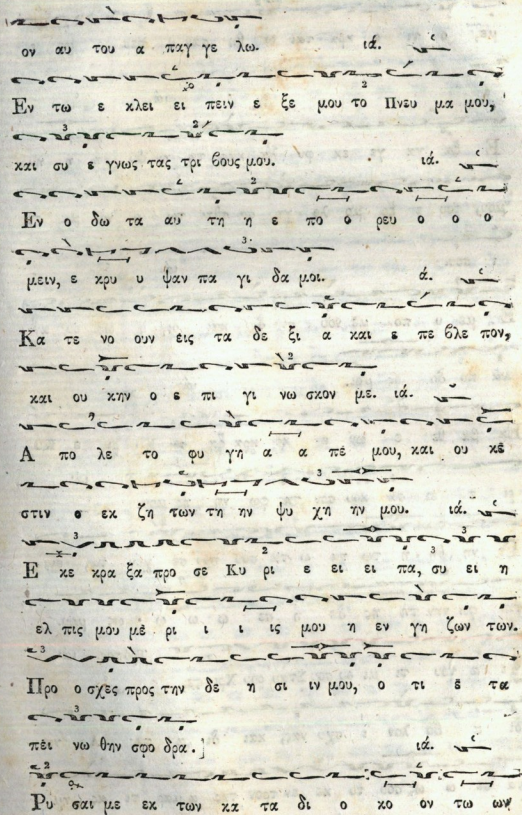 ον αυ του α παγ γε λω. ιά.
Εν τω ε κλει ει πειν ε ξε μου το Πνευ μα μου,
και συ ε γνως τας τρι βους μου. ιά.
Εν ο δω τα αυ τη η ε πο ο ρευ ο ο ο
μειν, ε κρυ υ ψαν πα γι δα μοι. ά.
Κα τε νο ουν εις τα δε ξι α και ε πε βλε πον,
και ου κην ο ε πι γι νω σκον με. ιά.
Α πο λε το φυ γη α α πε μου, και ου κε
στιν ο εκ ζη των τη ην ψυ χη ην μου. ιά.
Ε κε κρα ξα προ σε Κυ ρι ε ει ει πα, συ ει η
ελ πις μου με ρι ι ι ις μου η εν γη ζων των.
Προ ο σχες προς την δε η σι ιν μου, ο τι ε τα
πει νω θην σφο δρα.] ιά.
Ρυ σαι με εκ των κα τα δι ο κο ον τω ων